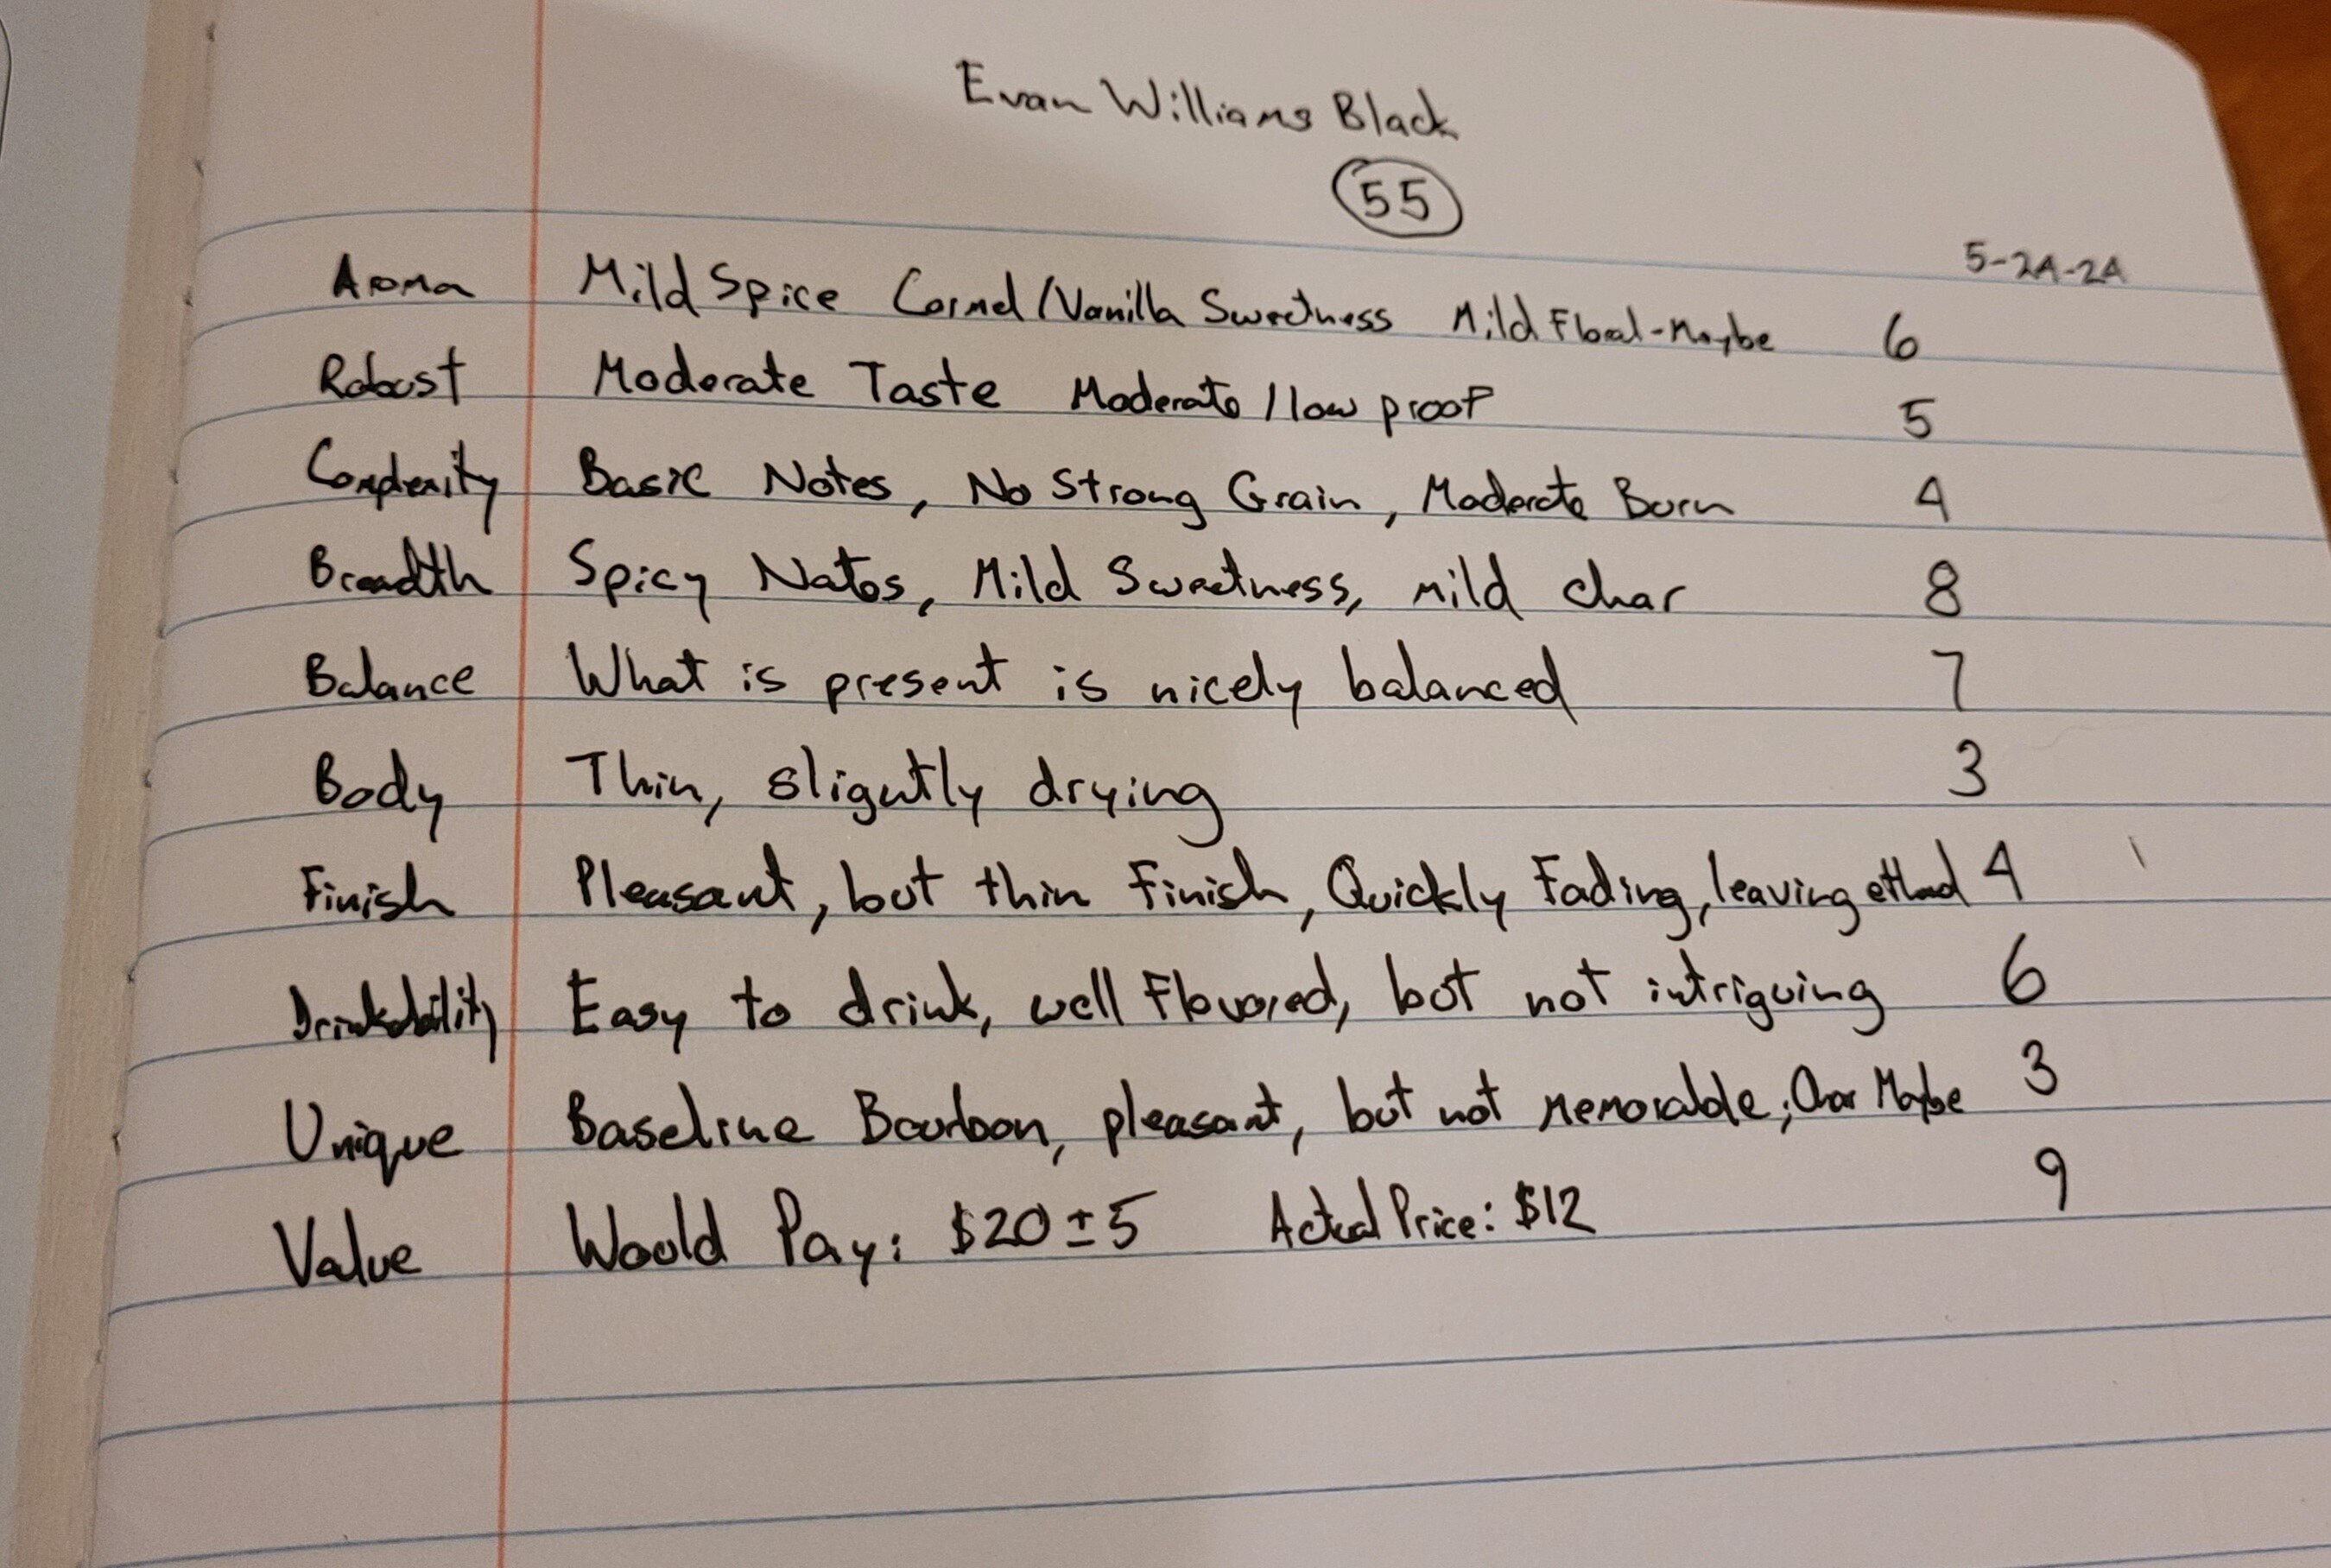 Evan Williams Black
55
5-24-24
Aroma Mild Spice Carmel/Vanilla Sweetness Mild Floral-Maybe 6
Robust Moderate Taste Moderate/low proof 5
Complexity Basic Notes, No Strong Grain, Moderate Burn 4
Breadth Spicy Notes, Mild Sweetness, mild char 8
Balance What is present is nicely balanced 7
Body Thin, slightly drying 3
Finish Pleasant, but thin finish, Quickly Fading, leaving ethanol 4
Drinkability Easy to drink, well flavored, but not intriguing 6
Unique Baseline Bourbon, pleasant, but not memorable; Char Maybe 3
Value Would Pay: $20 ± 5 Actual Price: $12 9